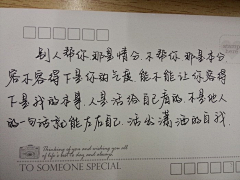 别人帮你那是情分,不帮你那是本分
容不容得下是你的气度,能不能让你容得
下是我的本事.人是活给自己看的,不是他人
的一句话就能左右自己.活出潇洒的自我.
Thinking of you and wishing you all
of life's best to day and always.
TO SOMEONE SPECIAL